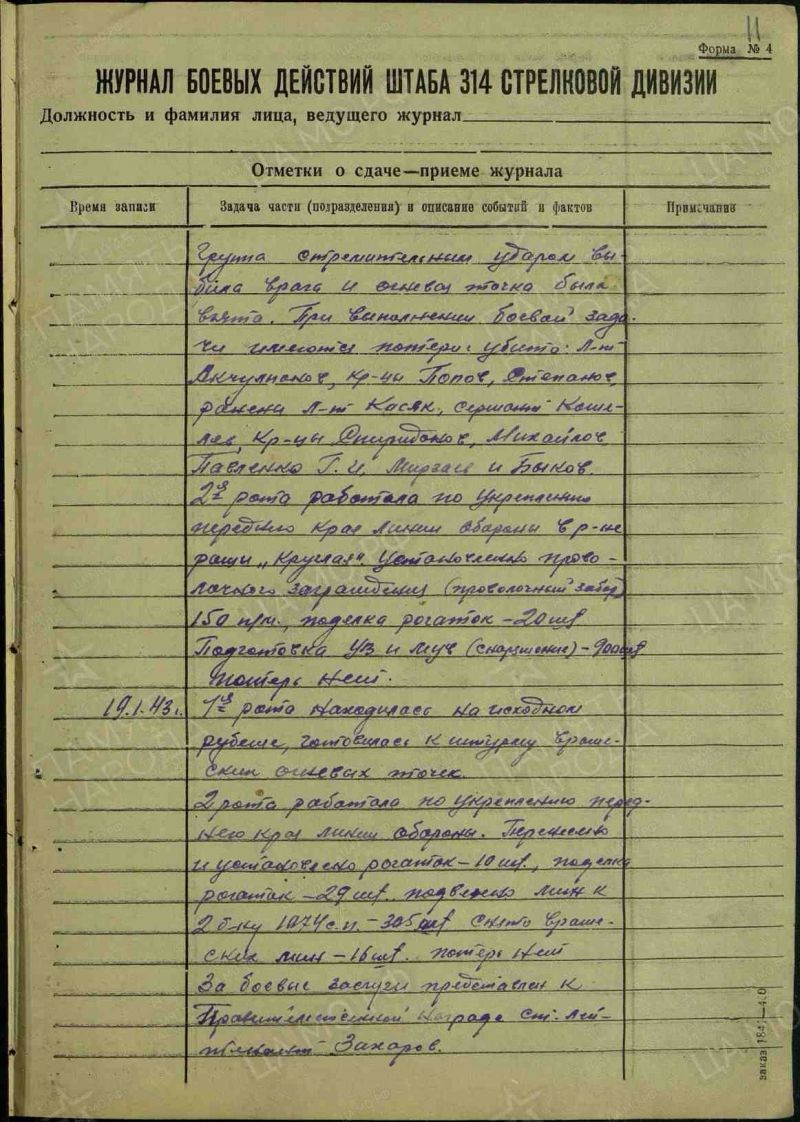 11
Форма № 4
ЖУРНАЛ БОЕВЫХ ДЕЙСТВИЙ ШТАБА 314 СТРЕЛКОВОЙ ДИВИЗИИ
Должность и фамилия лица, ведущего журнал
Отметки о сдаче—приеме журнала
Время записи Задача части (подразделения) и описание событий и фактов Примечание
Група стремительным ударом вы-
била врага и огневая точка была
взята. При выполнении боевой зада-
чи имеются потери: убито: Л-т
кр-цы Попов, Степанов,
ранены Л-т Касяк, сержант Коше-
лев, кр-цы Спиридонов, Михайлов
Павленко Г.И. и Быков.
2я рота работала по укреплению
переднего края линии обороны в р-не
рощи „Круглая". Установленно прово-
лочного заграждения (проволочный забор)
150 п/м., поделка рогаток – 20 шт
Подготовка УВ и МУВ (снаряжение) – 900 шт
Потерь нет.
19.1.43г. 1я рота находилась на исходном
рубеже, готовилась к штурму враже-
ских огневых точек.
2 рота работала по укреплению перед-
него края линии обороны. Перенесено
и установлено рогаток – 10 шт., поделка
рогаток – 29 шт. подвезено мин к
2 б-ну 1074 с.п. – 305 шт снято враже-
ских мин – 16 шт. потерь нет
За боевые заслуги представлен к
Правительственной награде ст. лей-
тенант Захаров.
ПАМЯТЬ НАРОДА
ЦА МО РФ